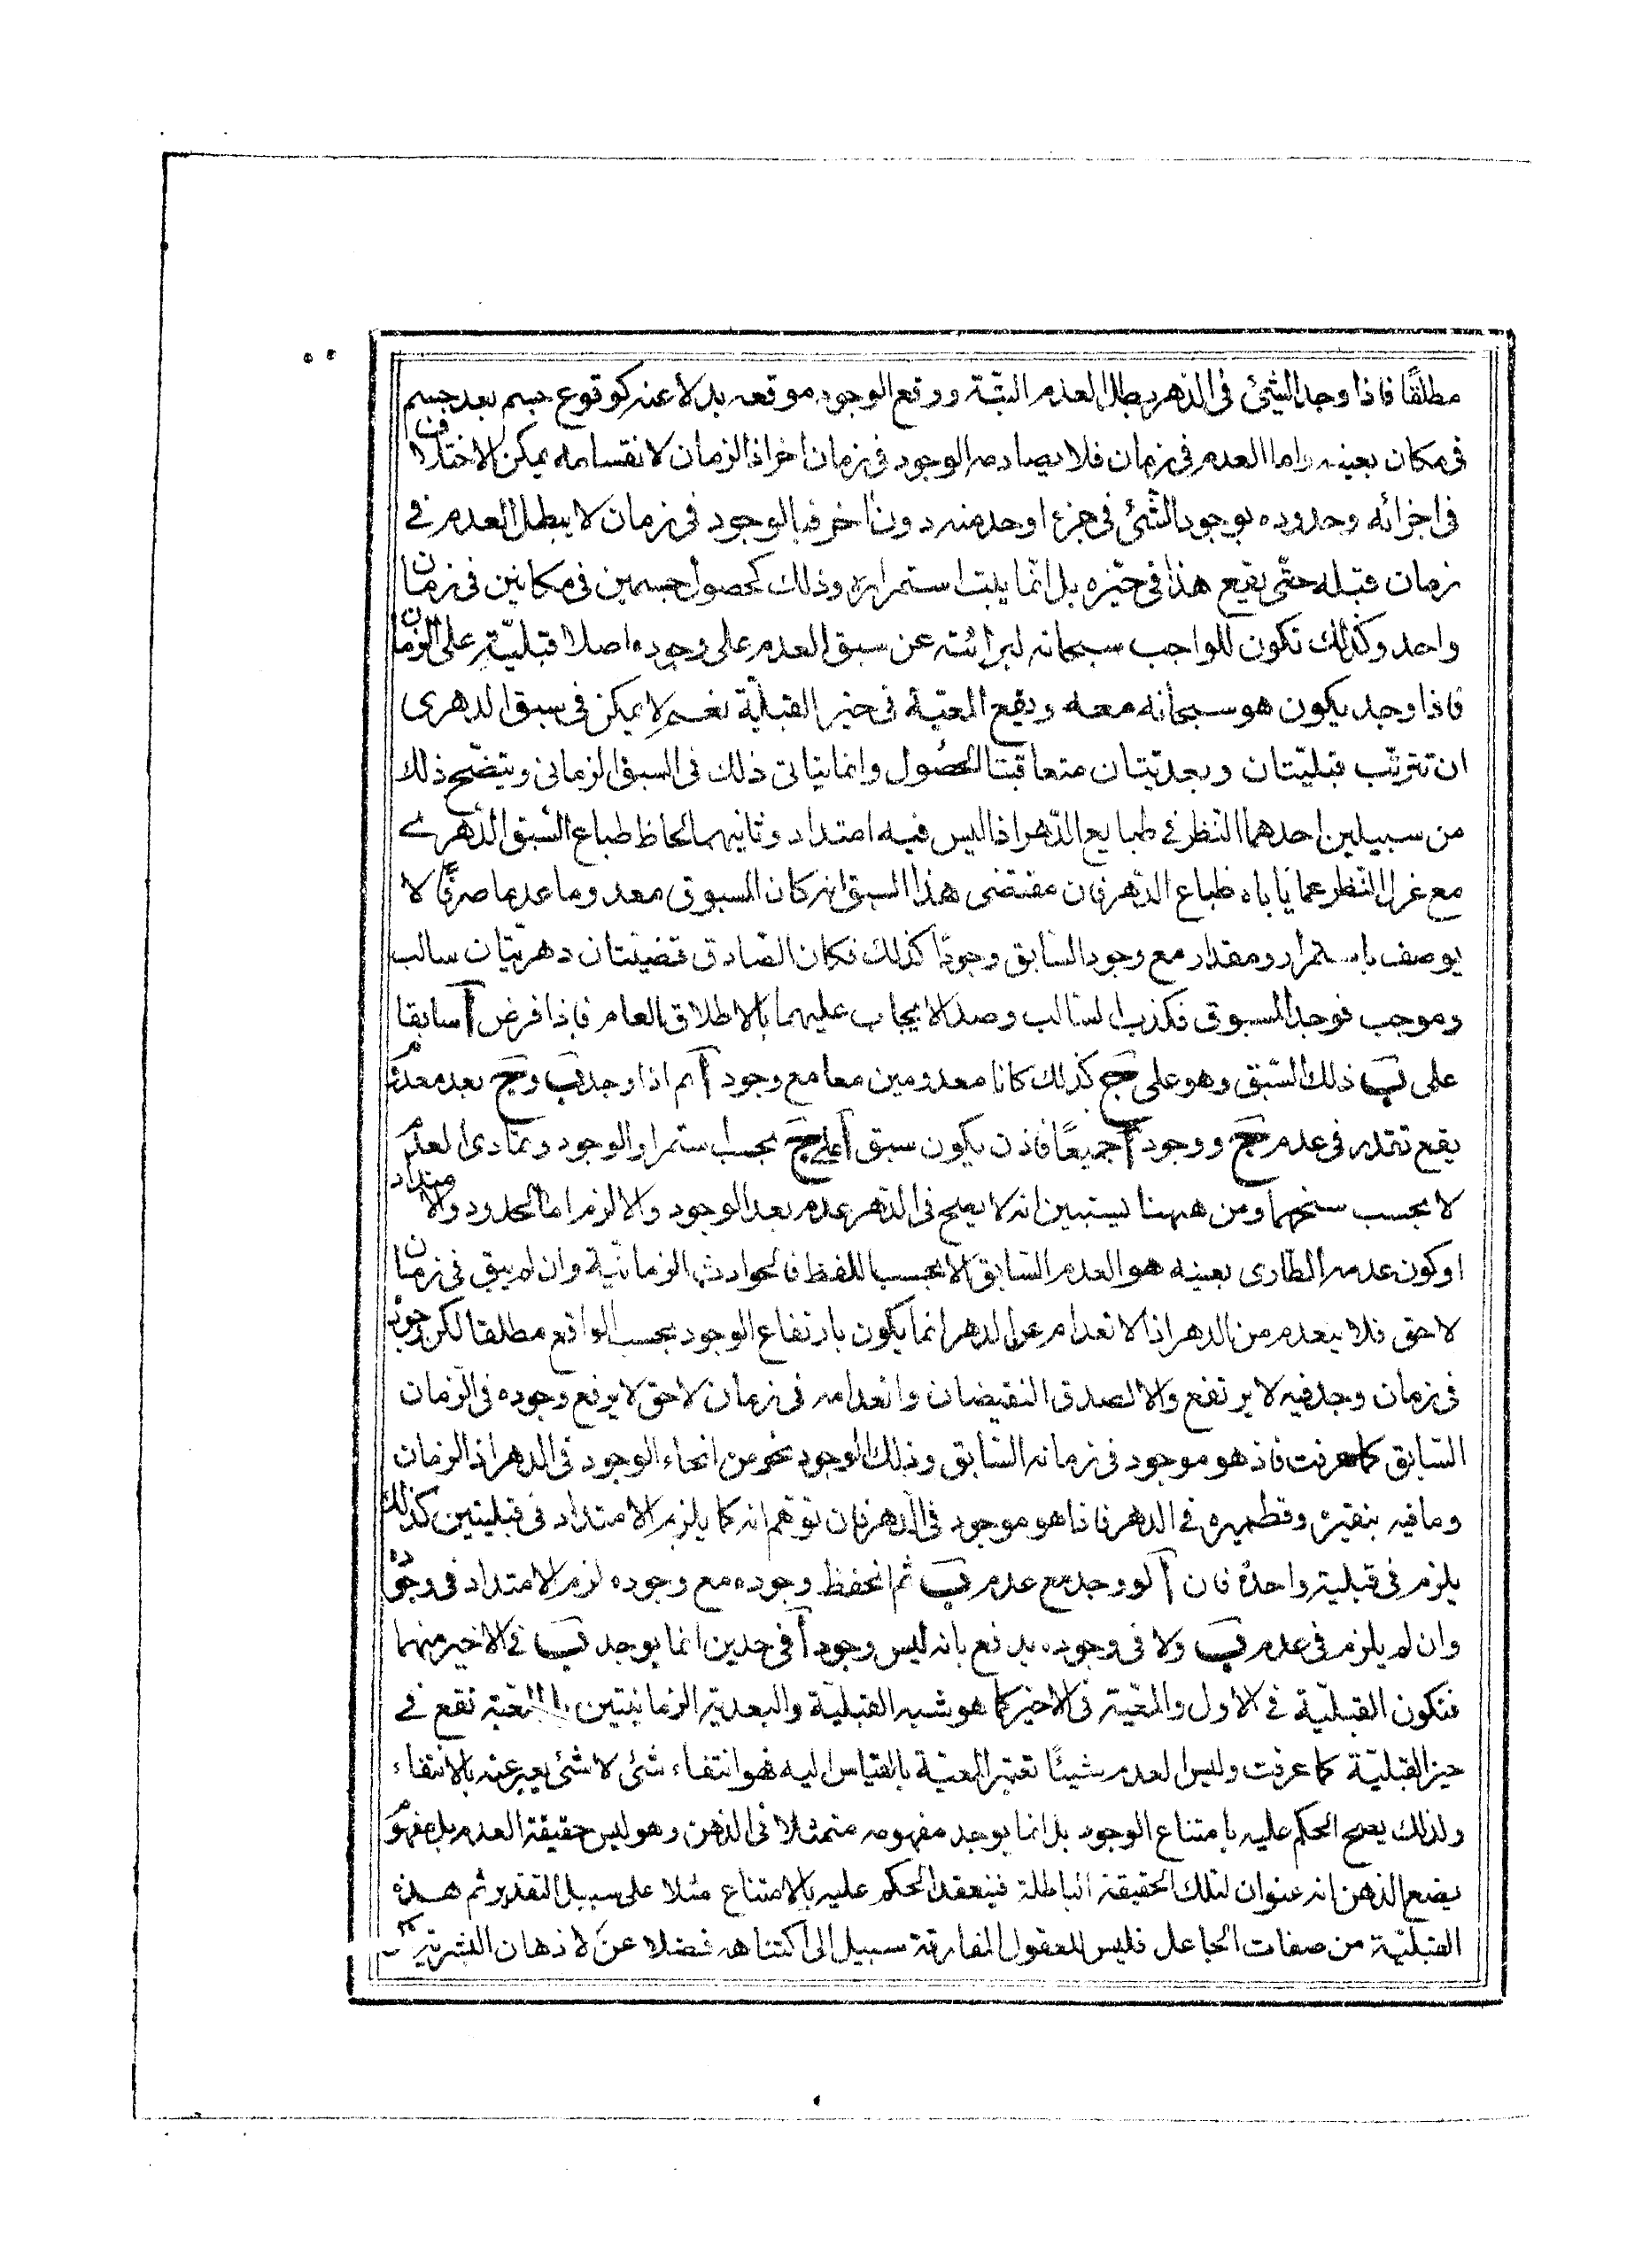 مطلقًا فاذا وجد الشيئ فى الدّهر بطل العدم البتّة ووقع الوجود موقعه بدلا عنه كوقوع جسم بعد جسم
فى مكان بعينه واما العدم فى زمان فلا يصادمه الوجود فى زمان اخر اذ الزمان لانقسامه يمكن الاختلاف
فى اجزائه وحدوده بوجود الشّئ فى جزء اوحد منه دون اخر فبالوجود فى زمان لا يبطل العدم فى
زمان قبله حتّى يقع هذا فى حيّزه بل انّما يبت استمراره وذلك كحصول جسمين فى مكانين فى زمان
واحد وكذلك تكون للواجب سبحانه لبرائته عن سبق العدم على وجوده اصلا قبليّة على الزمان
فاذا وجد يكون هو سبحانه معه ويقع المعيّة فى حيز القبليّة نعم لا يمكن فى سبق الدهرى
ان تترتّب قبليّتان وبعديّتان متعاقبتا الحصُول وانما يتاتى ذلك فى السبق الزمانى ويتضّح ذلك
من سبيلين احدهما النظر فى طبايع الدّهر اذ اليس فيه امتداد وثانيهما لحاظ طباع السّبق الدّهرے
مع عزل النّظر عما ياباه طباع الدّهر فان مقتضى هذا السبق انه كان المسبوق معدوما عدما صرفًا لا
يوصف باستمرار ومقدار مع وجود السّابق وجودًا كذلك فكان الصّادق قضيّتان دهريّتان سالب
وموجب فوجد المسبوق فكذب السّالب وصدق الايجاب عليهما بالاطلاق العام فاذا فرض آ سابقا
على بَ ذلك السّبق وهو على جَ كذلك كانا معدومين معا مع وجود آ ثم اذا وجد بَ وجَ بعد معدوم
يقع تقدمه فى عدم جَ ووجود آ جميعًا فاذن يكون سبق آ على جَ بحسب استمرار الوجود وتمادى العدم
لا بحسب سنخهما ومن ههنا يستبين انه لا يصح فى الدّهر عدم بعد الوجود والا لزم اما الحدود والامتداد
اوكون عدمه الطارى بعينه هو العدم السّابق لا بحسب اللفظ فالحوادث الزمانيّة وان لم يبق فى زمان
لاحق فلا ينعدم من الدهر اذ الانعدام عن الدهر انما يكون بارتفاع الوجود بحسب الواقع مطلقا لكن وجوده
فى زمان وجد فيه لا يرتفع والا لصدق النقيضان وانعدامه فى زمان لاحق لا يرفع وجوده فى الزمان
السّابق كما عرفت فاذ هو موجود فى زمانه السّابق وذلك الوجود نحو من انحاء الوجود فى الدهر اذ الزمان
وما فيه بنقيره وقطميره فى الدهر فاذا هو موجود فى الدهر فان توهّم انه كما يلزم الامتداد فى قبليتين كذلك
يلزم فى قبلية واحدة فان آ لو وجد مع عدم بَ ثم انحفظ وجوده مع وجوده لزم الامتداد فى وجوده
وان لم يلزم فى عدم بَ ولا فى وجوده يدفع بانه ليس وجود آ فى حدين انما يوجد بَ فى الاخير منهما
فتكون القبليّة فى الاول والمعيّة فى الاخير كما هو شبه القبليّة والبعديّة الزمانيتين تقع فے
حيز القبليّة كما عرفت وليس العدم شيئًا تعتبر المعيّة بالقياس اليه فهو انتفاء شئى لا شئى يعبر عنه بالانتفاء
ولذلك يصح الحكم عليه بامتناع الوجود بل انما يوجد مفهومه متمثلا فى الذهن وهو ليس حقيقة العدم بل مفهوم
يضع الذهن انه عنوان لتلك الحقيقة الباطلة فينعقد الحكم عليه بالامتناع مثلا على سبيل التقدير ثم هذه
القبليّة من صفات الجاعل فليس للعقول المفارقة سبيل الى اكتناهه فضلا عن الاذهان البشرية